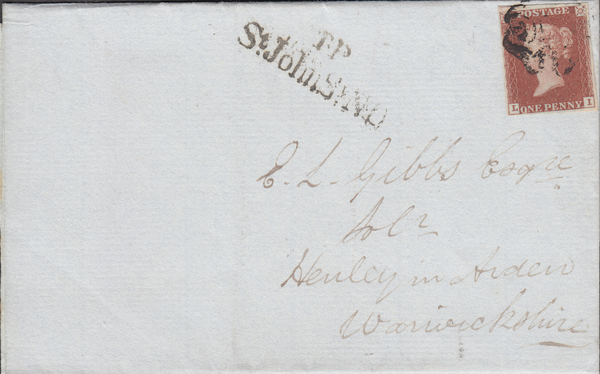 T.P
St. Johns Wd
POSTAGE
L ONE PENNY I
E. L. Gibbs Esqre
Solr
Henley in Arden
Warwickshire